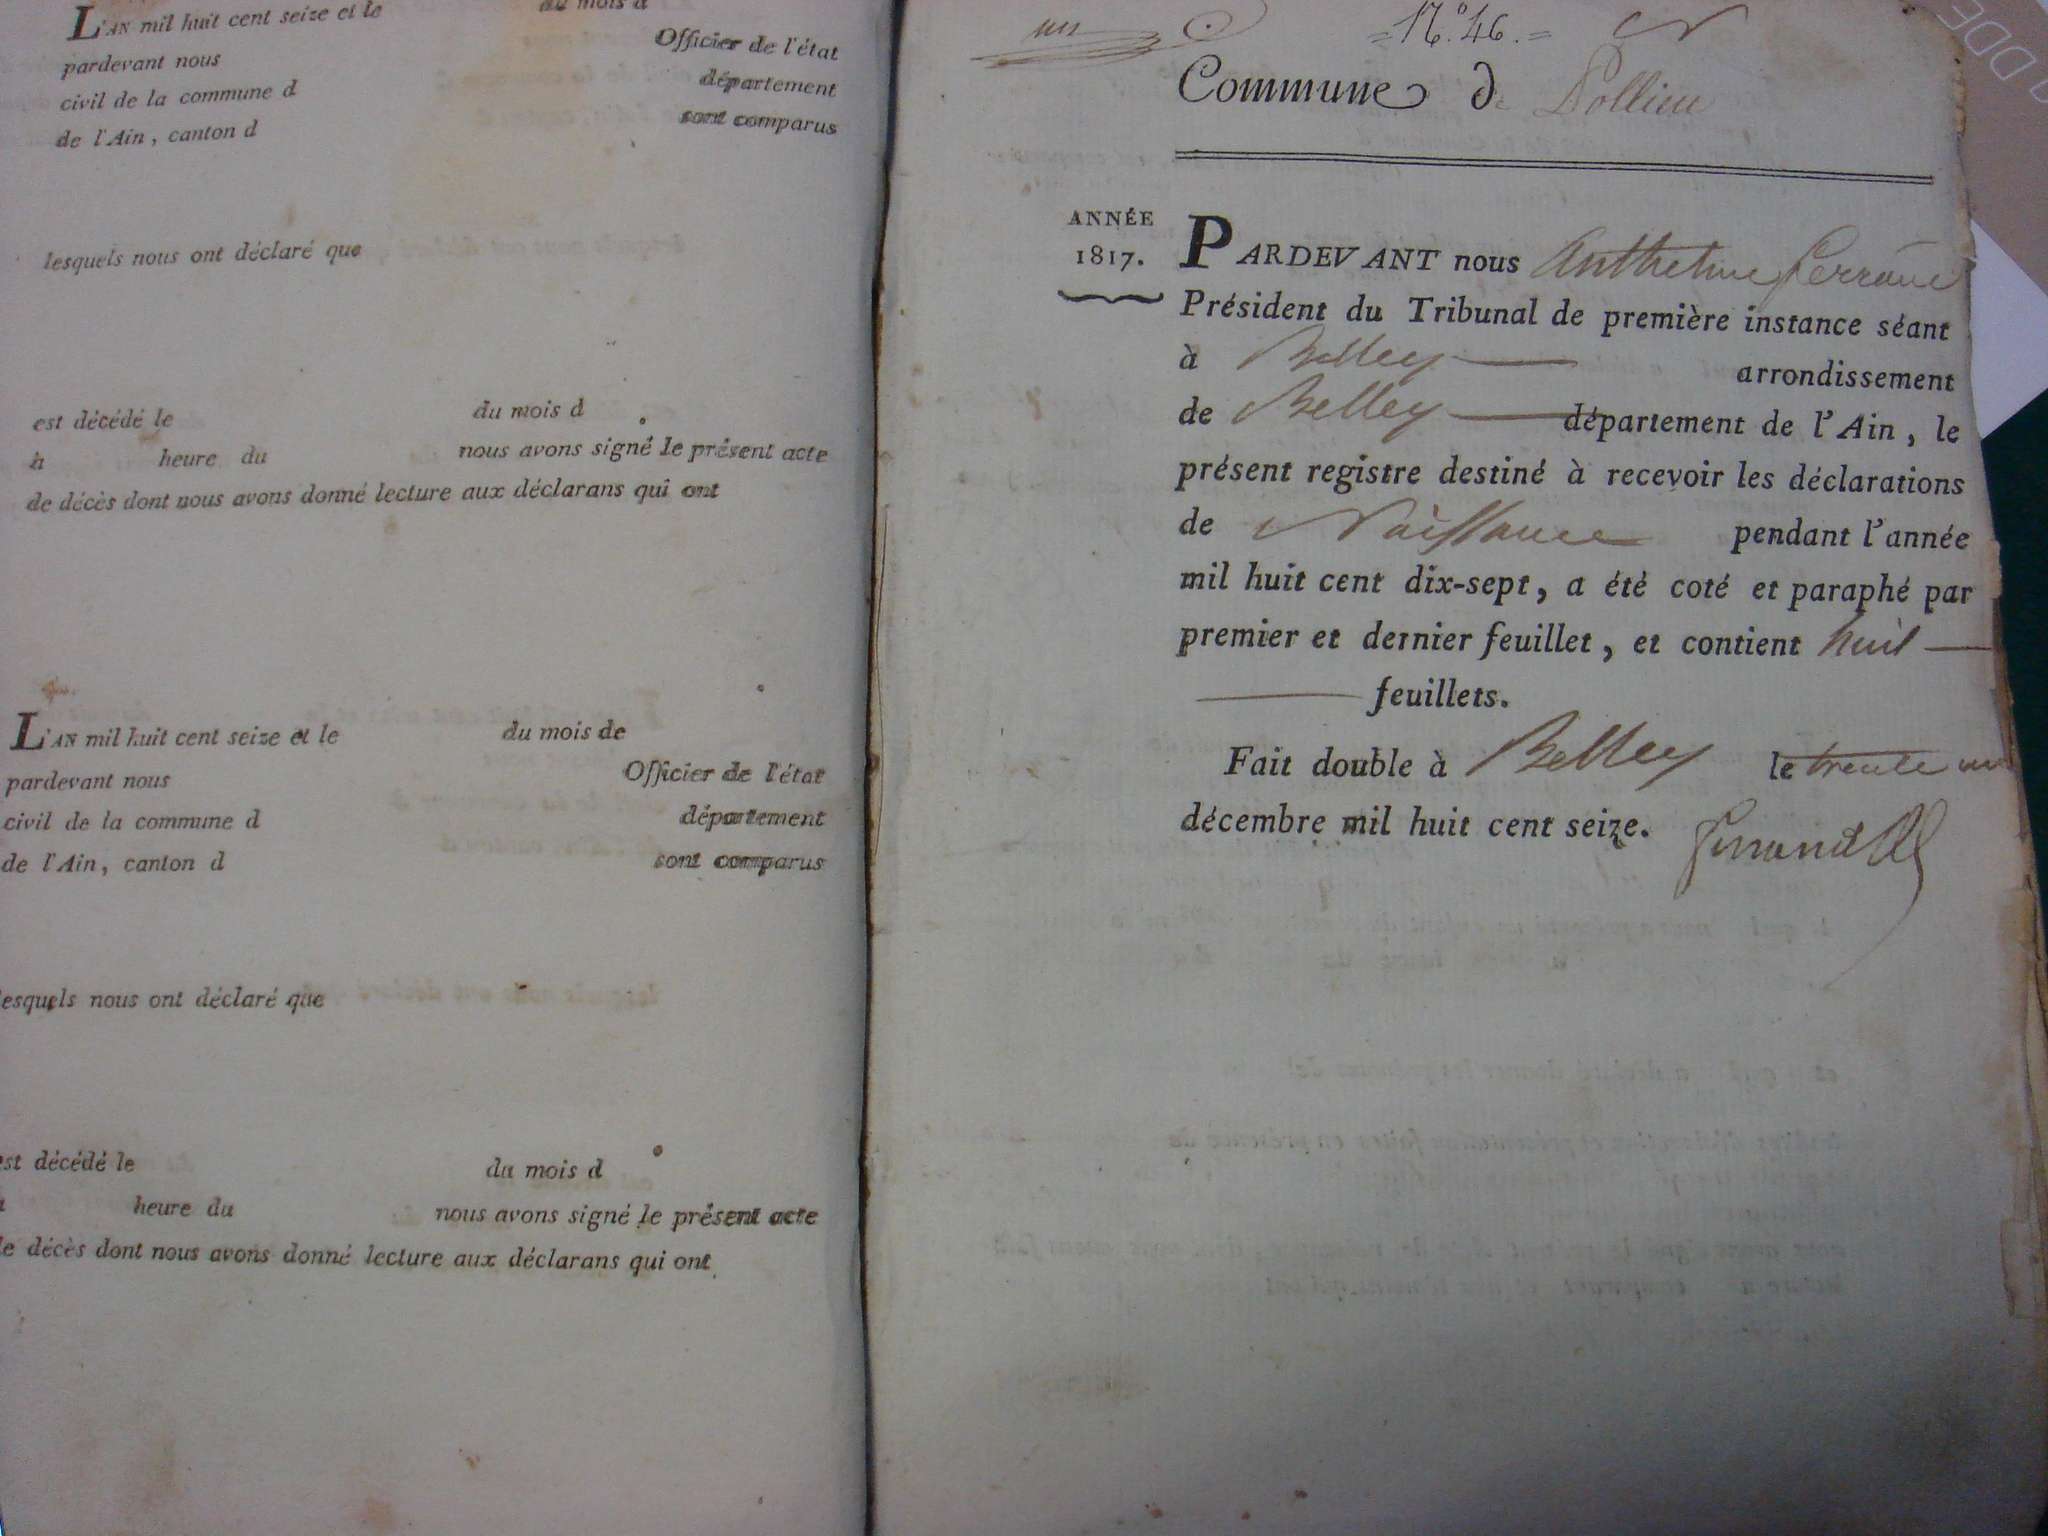 L'AN mil huit cent seize et le du mois d
pardevant nous Officier de l'état
civil de la commune d département
de l'Ain, canton d sont comparus
lesquels nous ont déclaré que
est décédé le du mois d
à heure du nous avons signé le présent acte
de décès dont nous avons donné lecture aux déclarans qui ont
L'AN mil huit cent seize et le du mois de
pardevant nous Officier de l'état
civil de la commune d département
de l'Ain, canton d sont comparus
lesquels nous ont déclaré que
est décédé le du mois d
heure du nous avons signé le présent acte
de décès dont nous avons donné lecture aux déclarans qui ont
un =N.º 46.= N
Commune de Pollieu
ANNÉE
1817.
PARDEVANT nous Anthelme ferrand
Président du Tribunal de première instance séant
à Belley arrondissement
de Belley département de l'Ain, le
présent registre destiné à recevoir les déclarations
de Naissance pendant l'année
mil huit cent dix-sept, a été coté et paraphé par
premier et dernier feuillet, et contient huit
feuillets.
Fait double à Belley le trente un
décembre mil huit cent seize.
ferrand
DDE